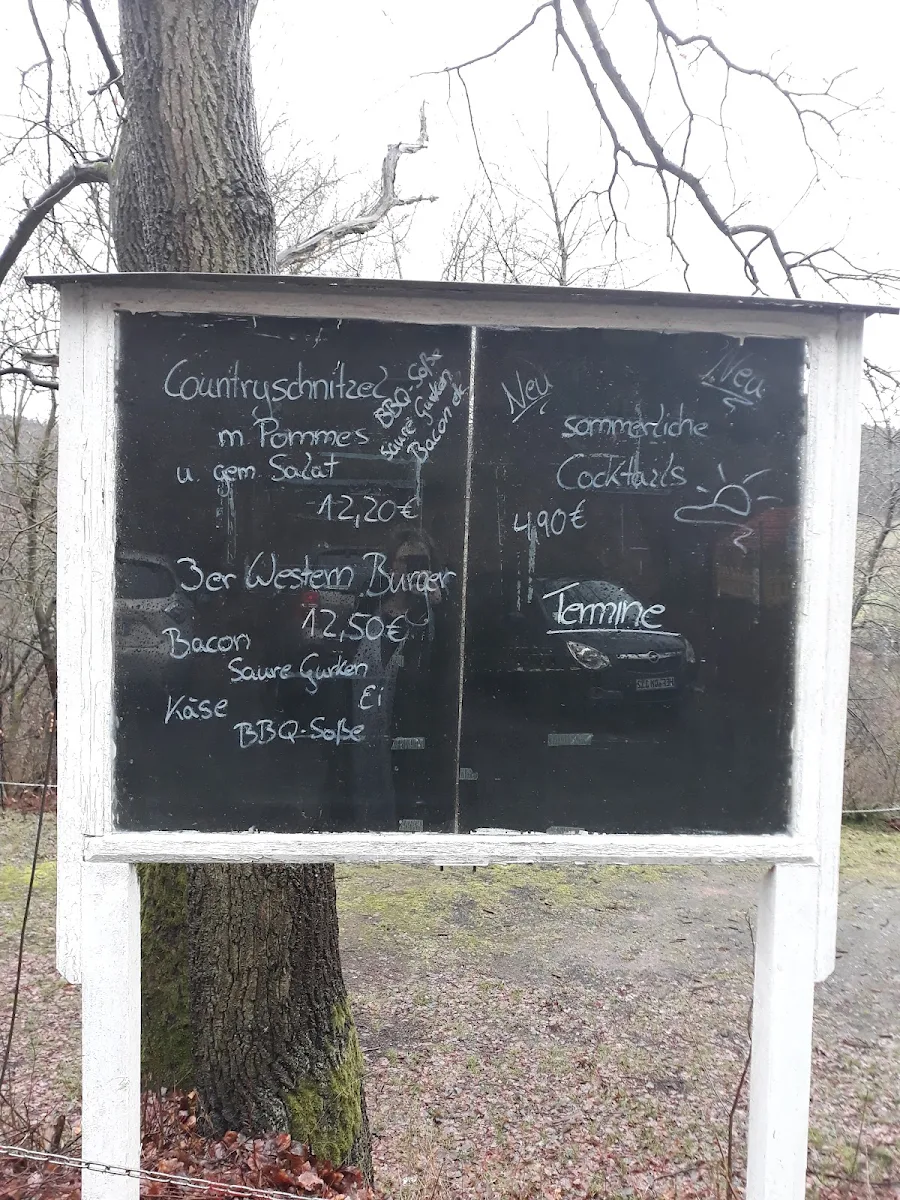 Countryschnitzel
BBQ-Soße
saure Gurken
Bacon
m Pommes
u. gem Salat
12,20€
3er Western Burger
12,50€
Bacon
Saure Gurken
Ei
Käse
BBQ-Soße
Neu
Neu
sommerliche
Cocktails
4,90€
Termine